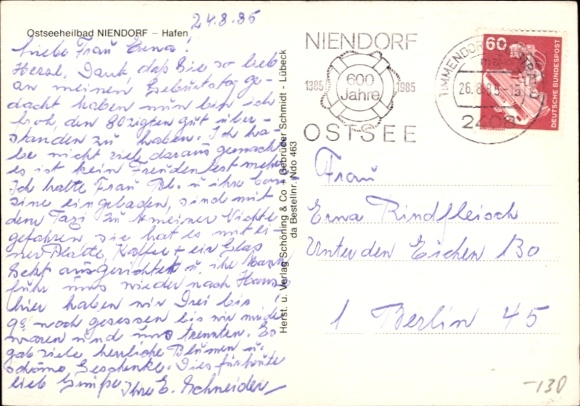 24.8.85
Ostseeheilbad NIENDORF – Hafen
Liebe Frau Erna!
Herzl. Dank daß Sie so lieb
an meinen Geburtstag ge-
dacht haben nun bin ich
froh, den 80zigten gut über-
standen zu haben. Ich ha-
be nicht viel daraus gemacht
es ist kein Freudenfest mehr.
Ich hatte Frau u ihre Cou-
sine eingeladen, sind mit
dem Taxi zu meiner Nichte
gefahren sie hat es mit ei-
ner Platte, Kaffee + ein Glas
Sekt ausgerichtet u. ihr Mann
fuhr uns wieder nach Hause
hier haben wir Drei bis
noch gesessen bis wir müde
waren und uns trennten. Es
gab viele herrliche Blumen u.
schöne Geschenke. Dies für heute
lieb Grüße Ihre E. Schneider
Herst. u. Verlag Schöning & Co + Gebrüder Schmidt - Lübeck
da Bestellnr. Ndo 463
NIENDORF
1385 600 Jahre 1985
OSTSEE
TIMMENDORF
26.8.85
2408
60
DEUTSCHE BUNDESPOST
Frau
Erna Rindfleisch
Unter den Eichen 130
1 Berlin 45
-130